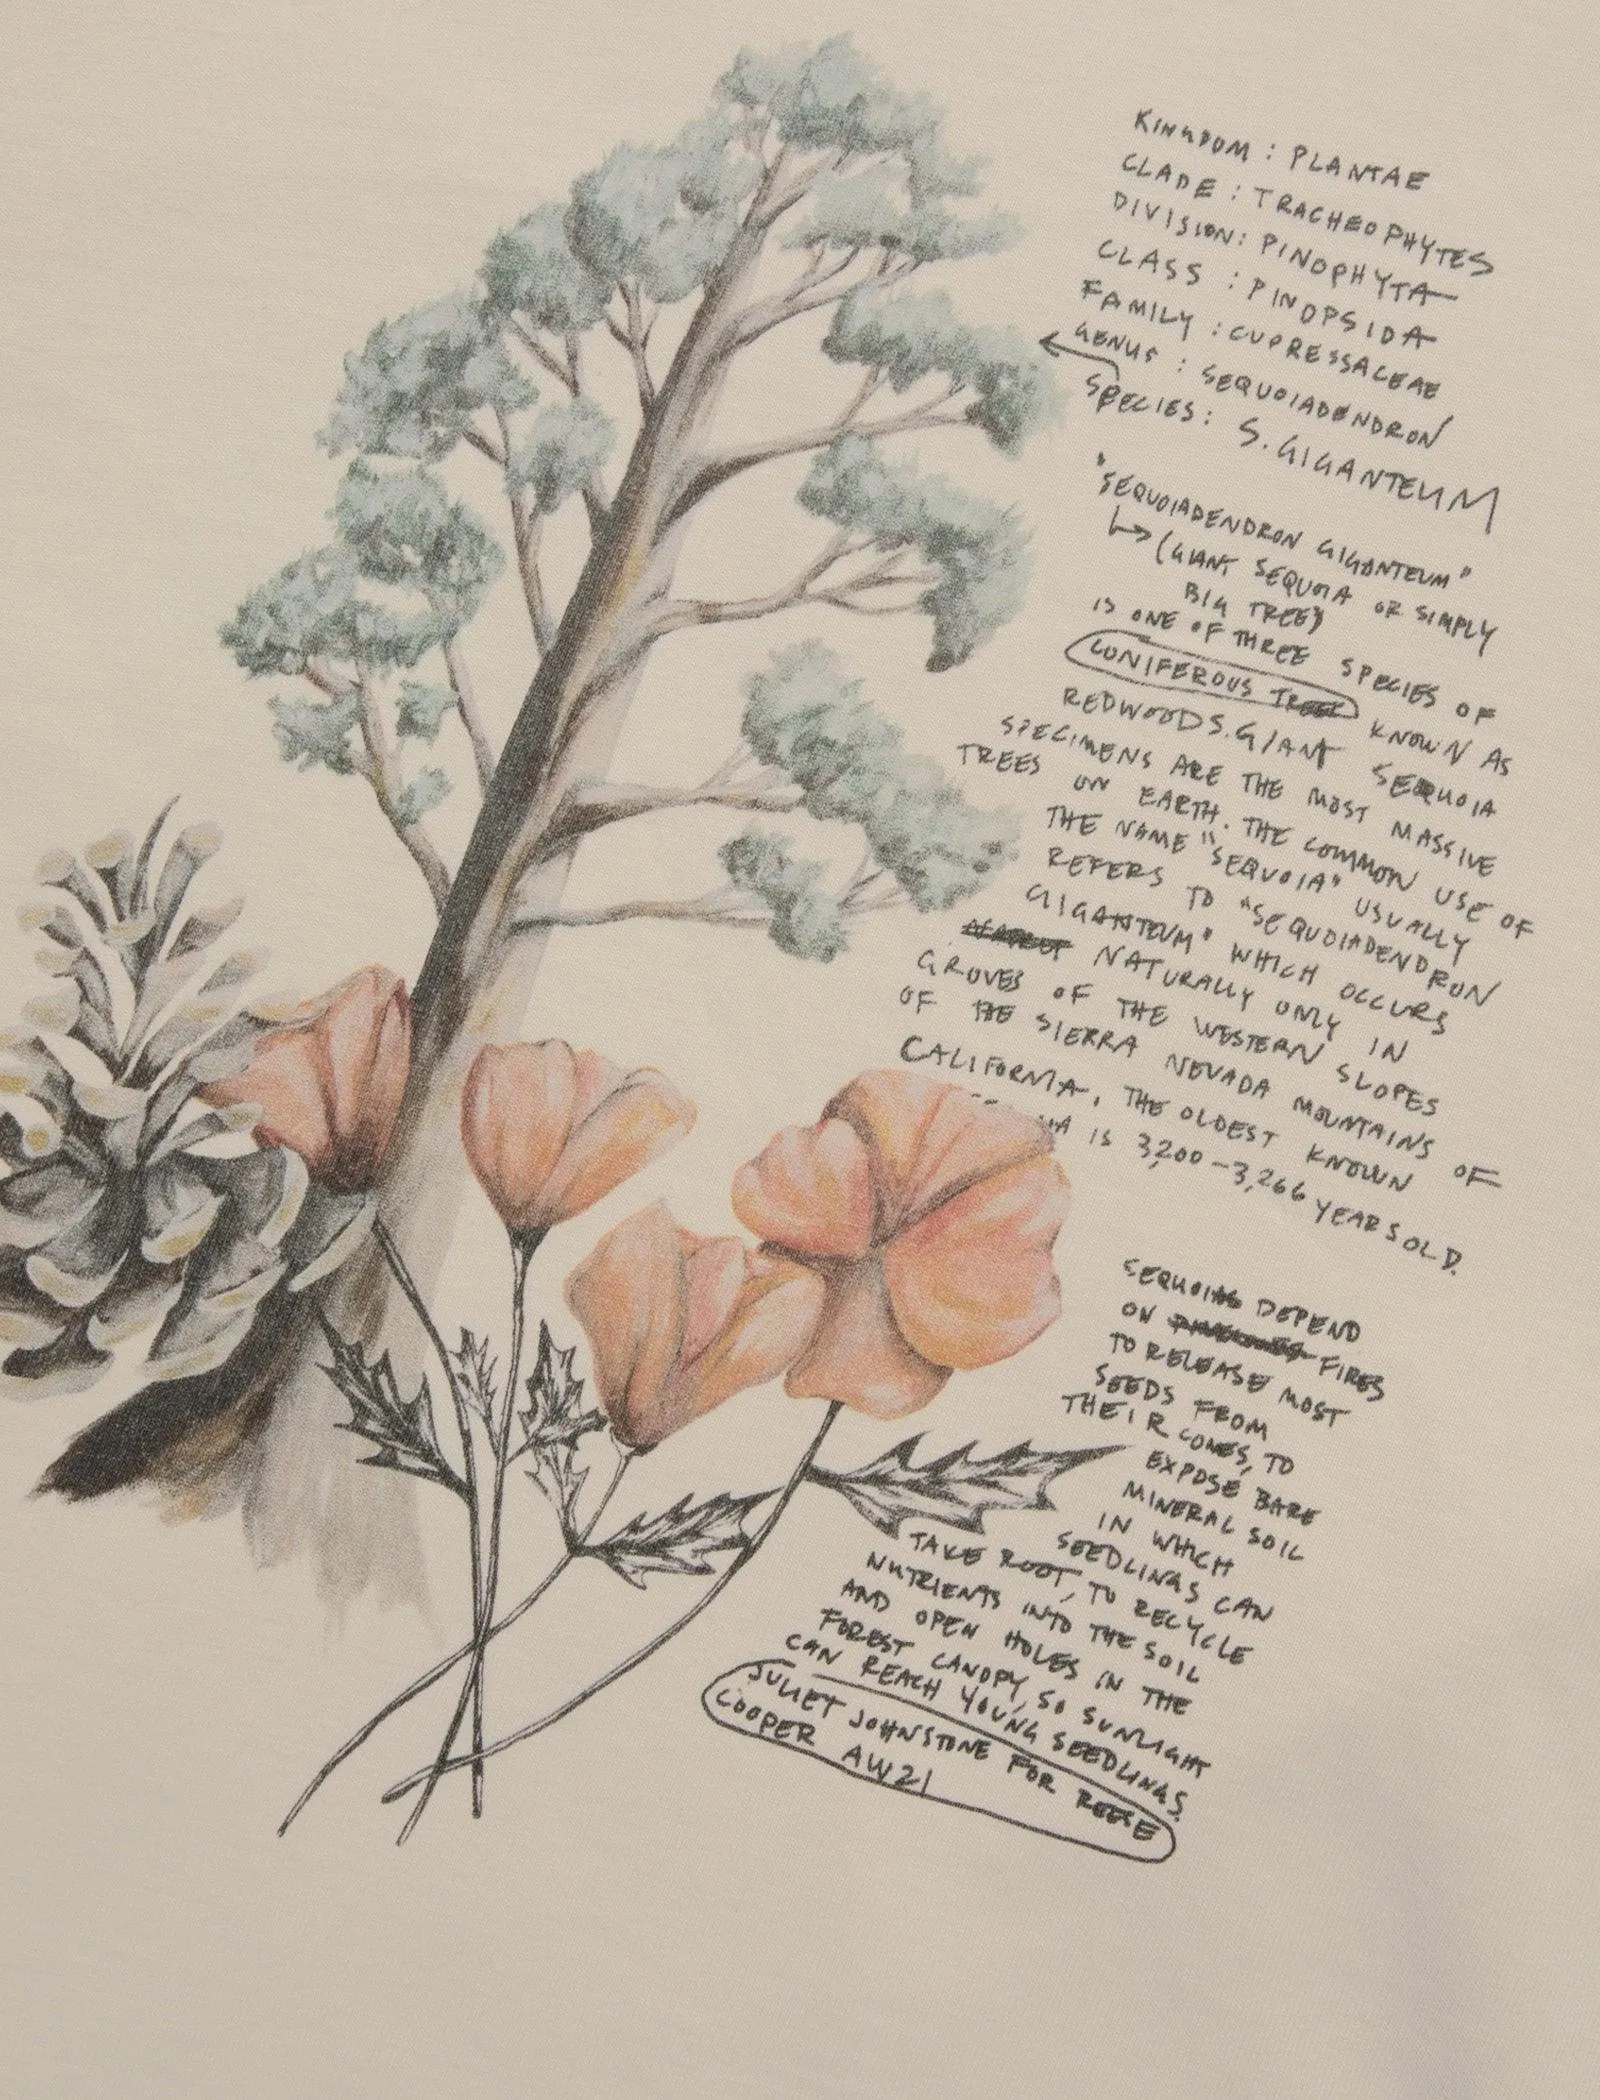 KINGDOM : PLANTAE
CLADE : TRACHEOPHYTES
DIVISION: PINOPHYTA
CLASS : PINOPSIDA
FAMILY : CUPRESSACEAE
GENUS : SEQUOIADENDRON
SPECIES: S. GIGANTEUM
"SEQUOIADENDRON GIGANTEUM"
(GIANT SEQUOIA OR SIMPLY
BIG TREE)
IS ONE OF THREE SPECIES OF
CONIFEROUS TREES KNOWN AS
REDWOODS. GIANT SEQUOIA
SPECIMENS ARE THE MOST MASSIVE
TREES ON EARTH. THE COMMON USE OF
THE NAME "SEQUOIA" USUALLY
REFERS TO "SEQUOIADENDRON
GIGANTEUM" WHICH OCCURS
NATURALLY ONLY IN
GROVES OF THE WESTERN SLOPES
OF THE SIERRA NEVADA MOUNTAINS OF
CALIFORNIA. THE OLDEST KNOWN
IS 3,200 - 3,266 YEARS OLD.
SEQUOIAS DEPEND
ON FIRES
TO RELEASE MOST
SEEDS FROM
THEIR CONES, TO
EXPOSE BARE
MINERAL SOIL
IN WHICH
SEEDLINGS CAN
TAKE ROOT, TO RECYCLE
NUTRIENTS INTO THE SOIL
AND OPEN HOLES IN THE
FOREST CANOPY, SO SUNLIGHT
CAN REACH YOUNG SEEDLINGS.
JULIET JOHNSTONE FOR REESE
COOPER AW21